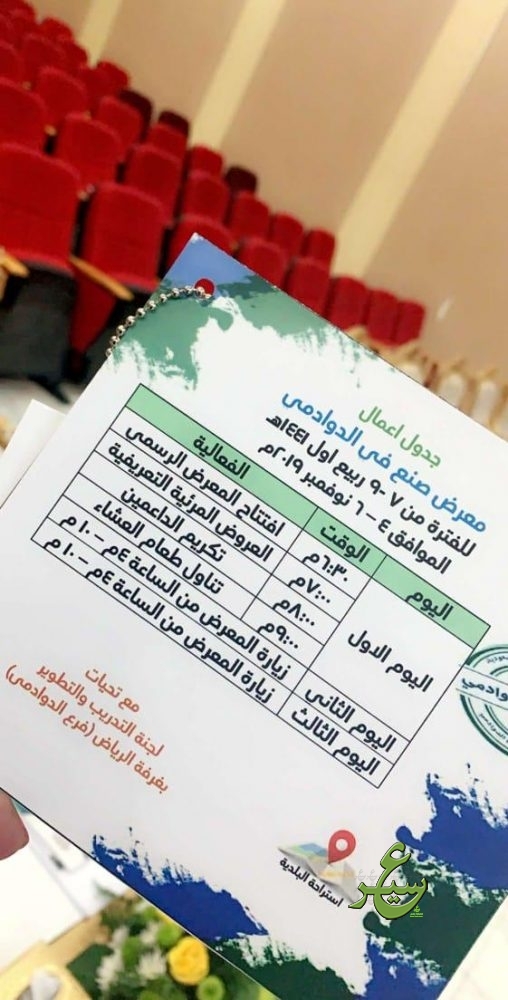 جدول اعمال
معرض صنع في الدوادمي
للفترة من ٧-٩ ربيع اول ١٤٤١هـ
الموافق ٤ - ٦ نوفمبر ٢٠١٩م
اليوم الوقت الفعالية
اليوم الاول ٦:٣٠م افتتاح المعرض الرسمي
٧:٠٠م العروض المرئية التعريفية
٨:٠٠م تكريم الداعمين
٩:٠٠م تناول طعام العشاء
اليوم الثاني زيارة المعرض من الساعة ٤م - ١٠م
اليوم الثالث زيارة المعرض من الساعة ٤م - ١٠م
مع تحيات
لجنة التدريب والتطوير
بغرفة الرياض (فرع الدوادمي)
استراحة البلدية